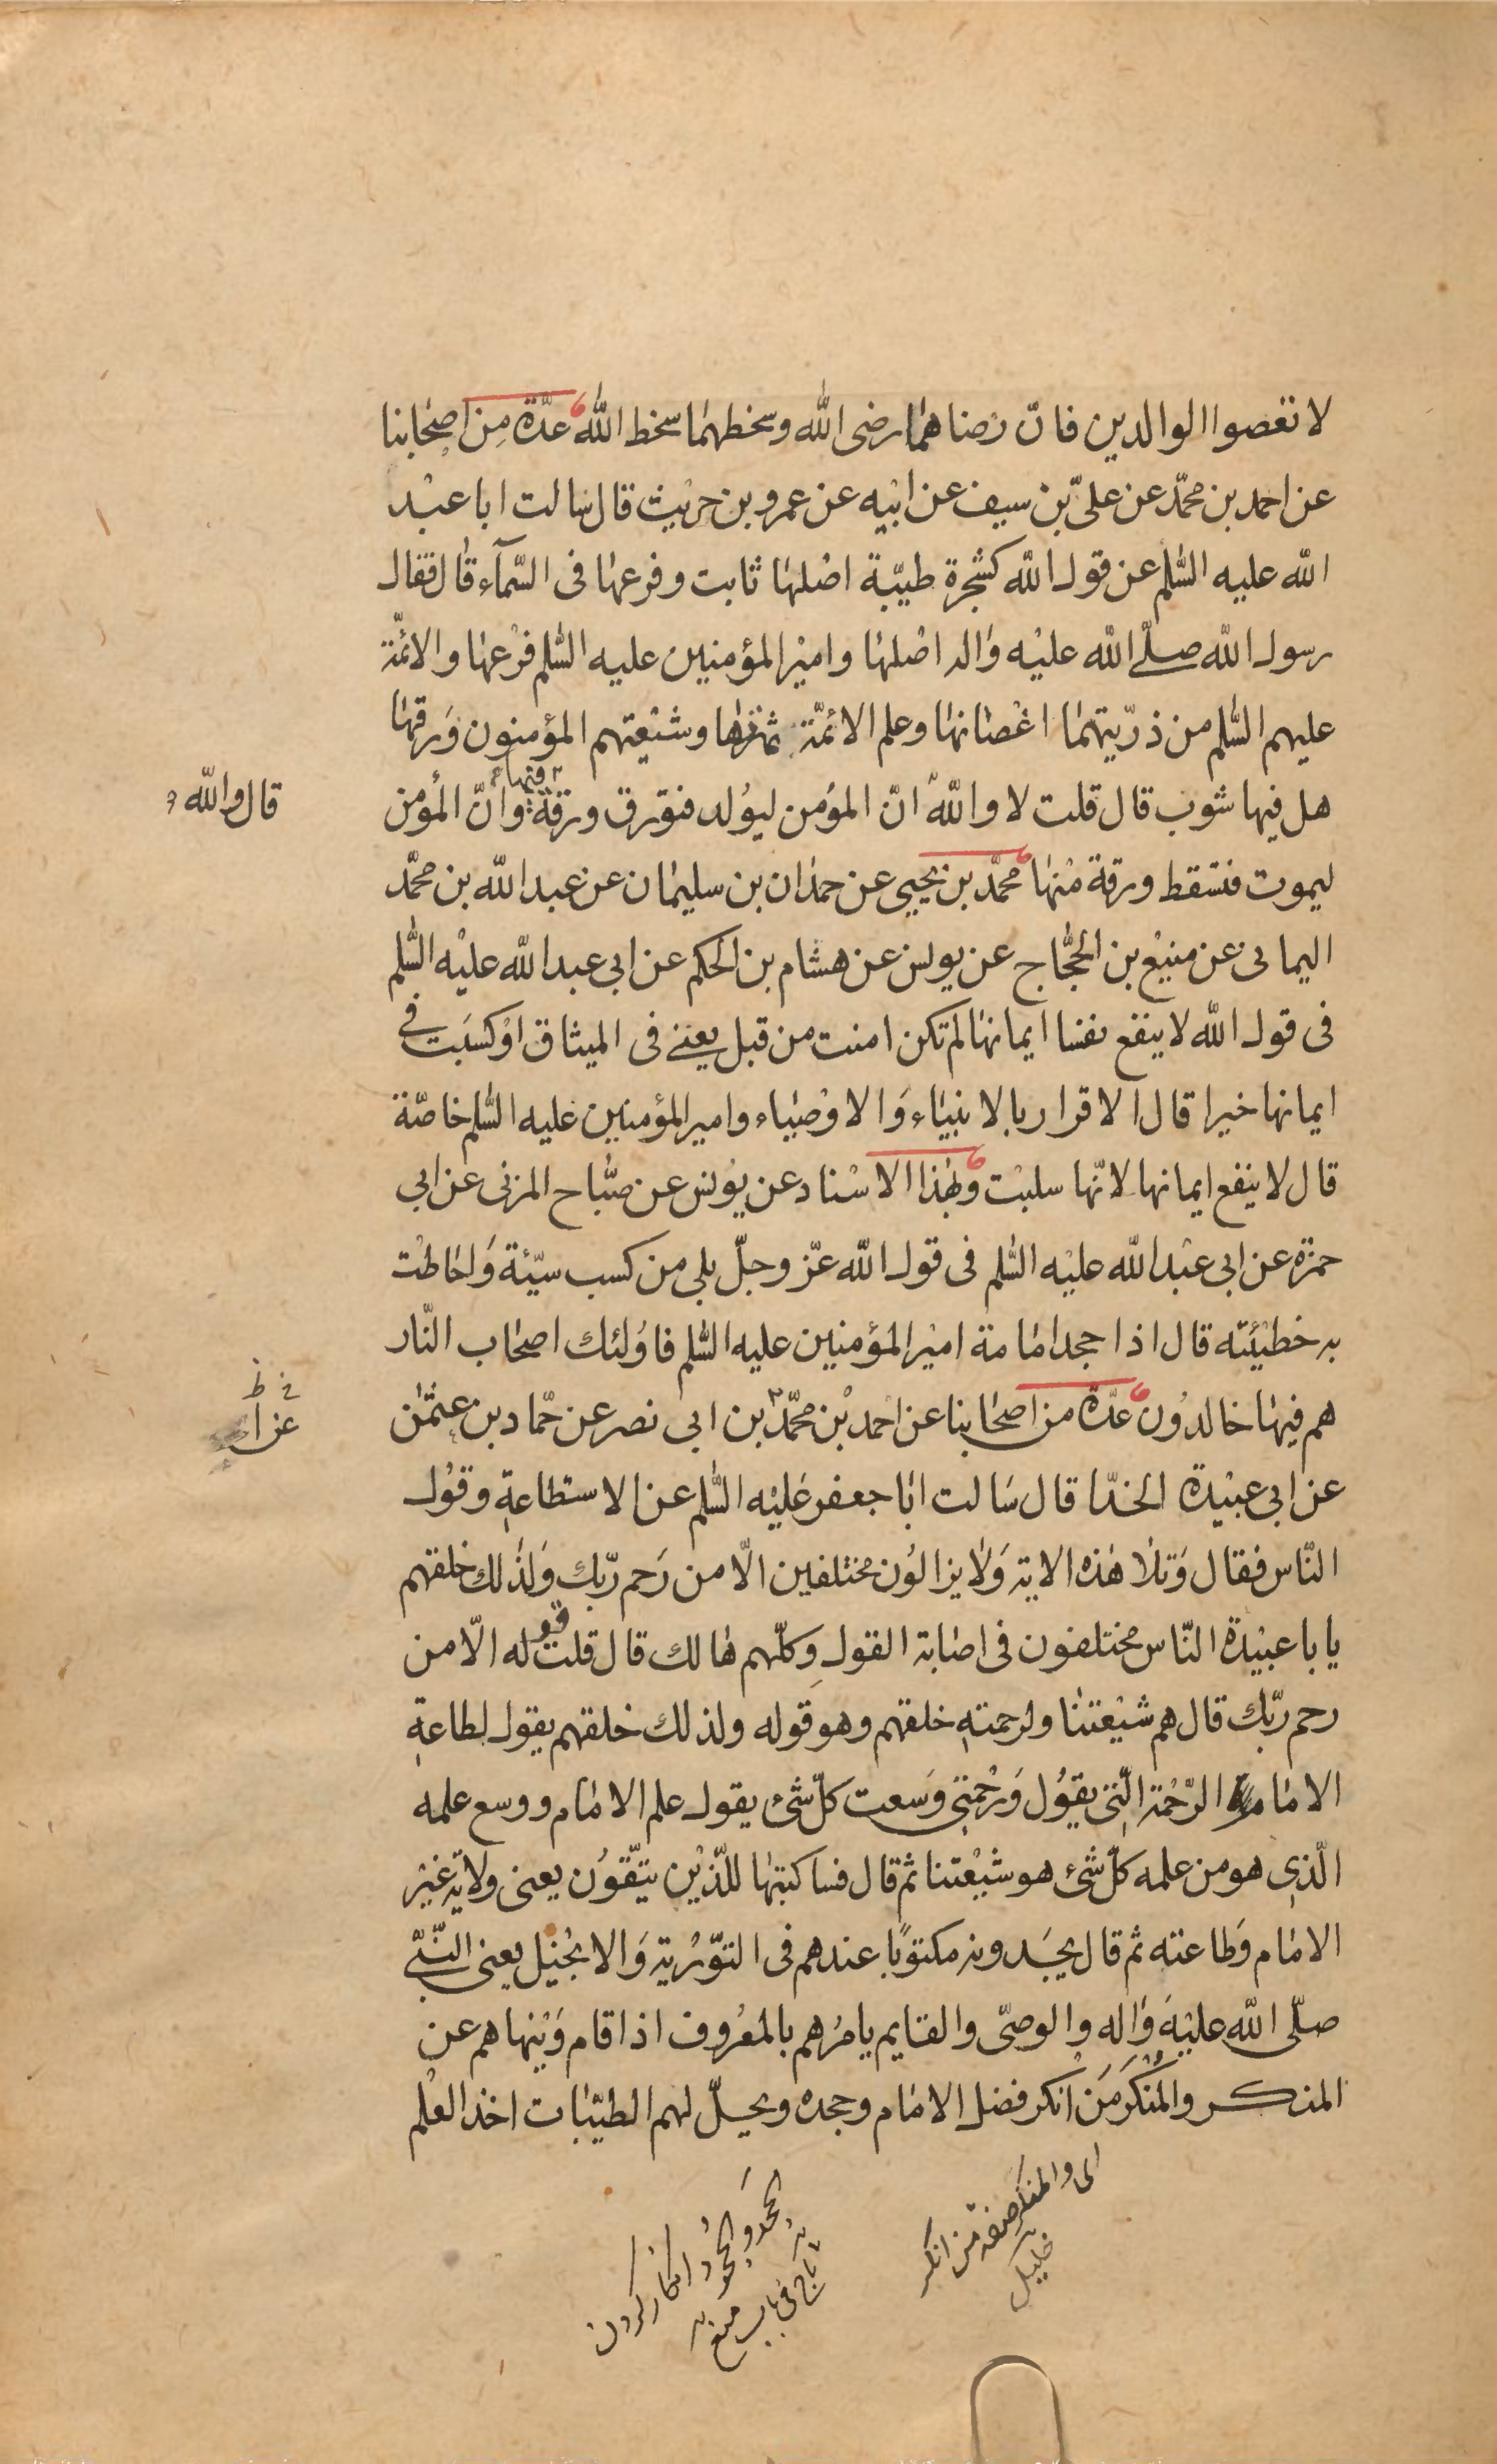 لا تعصوا الوالدين فانّ رضاهما رضى الله وسخطهما سخط الله عدّة من اصحابنا
عن احمد بن محمّد عن علىّ بن سيف عن ابيه عن عمرو بن حريث قال سالت ابا عبد
الله عليه السّلم عن قول الله كشجرة طيّبة اصلها ثابت وفرعها فى السّمآء قال فقال
رسول الله صلّى الله عليه واله اصلها وامير المؤمنين عليه السّلم فرعها والائمّة
عليهم السّلم من ذرّيتهما اغصانها وعلم الائمّة ثمرتها وشيعتهم المؤمنون ورقها
هل فيها شوب قال قلت لا والله انّ المؤمن ليولد فتورق ورقة فيها وانّ المؤمن
قال والله و
ليموت فتسقط ورقة منها محمّد بن يحيى عن حمدان بن سليمان عن عبد الله بن محمّد
اليمانى عن منيع بن الحجّاج عن يونس عن هشام بن الحكم عن ابى عبد الله عليه السّلم
فى قول الله لا ينفع نفسا ايمانها لم تكن امنت من قبل يعنى فى الميثاق او كسبت فى
ايمانها خيرا قال الاقرار بالانبياء والاوصياء وامير المؤمنين عليه السّلم خاصّة
قال لا ينفع ايمانها لانّها سلبت وبهذا الاسناد عن يونس عن صبّاح المزنى عن ابى
حمزة عن ابى عبد الله عليه السّلم فى قول الله عزّ وجلّ بلى من كسب سيّئة واحاطت
به خطيئته قال اذا جحد امامة امير المؤمنين عليه السّلم فاولئك اصحاب النّار
هم فيها خالدون عدّة من اصحابنا عن احمد بن محمّد بن ابى نصر عن حمّاد بن عثمٰن
خ ظ
عن ا
عن ابى عبيدة الحذّا قال سالت ابا جعفر عليه السّلم عن الاستطاعة وقول
النّاس فقال وتلا هذه الاية ولا يزالون مختلفين الّا من رحم ربّك ولذلك خلقهم
يا با عبيدة النّاس مختلفون فى اصابة القول وكلّهم هالك قال قلت قوله الّا من
رحم ربّك قال هم شيعتنا ولرحمته خلقهم وهو قوله ولذلك خلقهم يقول لطاعة
الامام الرّحمة الّتى يقول ورحمتى وسعت كلّ شىء يقول علم الامام ووسع علمه
الّذى هو من علمه كلّ شىء هو شيعتنا ثم قال فساكتبها للّذين يتّقون يعنى ولاية غير
الامام وطاعته ثم قال يجدونه مكتوبًا عندهم فى التّورٰية والانجيل يعنى النّبىّ
صلّى الله عليه واله والوصىّ والقايم يامرهم بالمعروف اذا قام وينهاهم عن
المنكر والمنكر من انكر فضل الامام وجحده ويحلّ لهم الطيّبات اخذ العلم
اى والمنكر صفة من انكر
خليل
الجحد والجحود انكار كردن
تاج فى باب منع